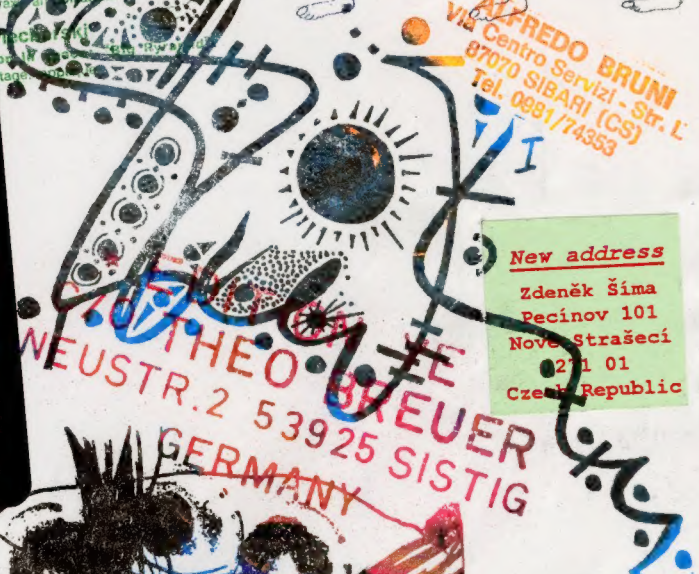 ALFREDO BRUNI
Via Centro Servizi - Str. L
87070 SIBARI (CS)
Tel. 0981/74353
I
New address
Zdeněk Šíma
Pecínov 101
Nové Strašecí
271 01
Czech Republic
* EDITION YE
C/o THEO BREUER
NEUSTR.2 53925 SISTIG
GERMANY